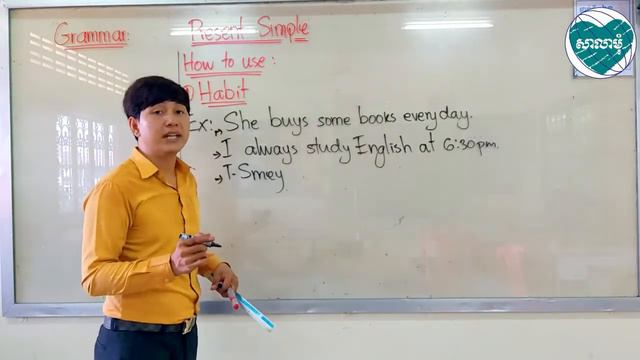 Grammar: Present Simple
How to use :
① Habit
Ex: → She buys some books everyday.
→ I always study English at 6:30pm.
→ T-Smey
សាលាមុំ